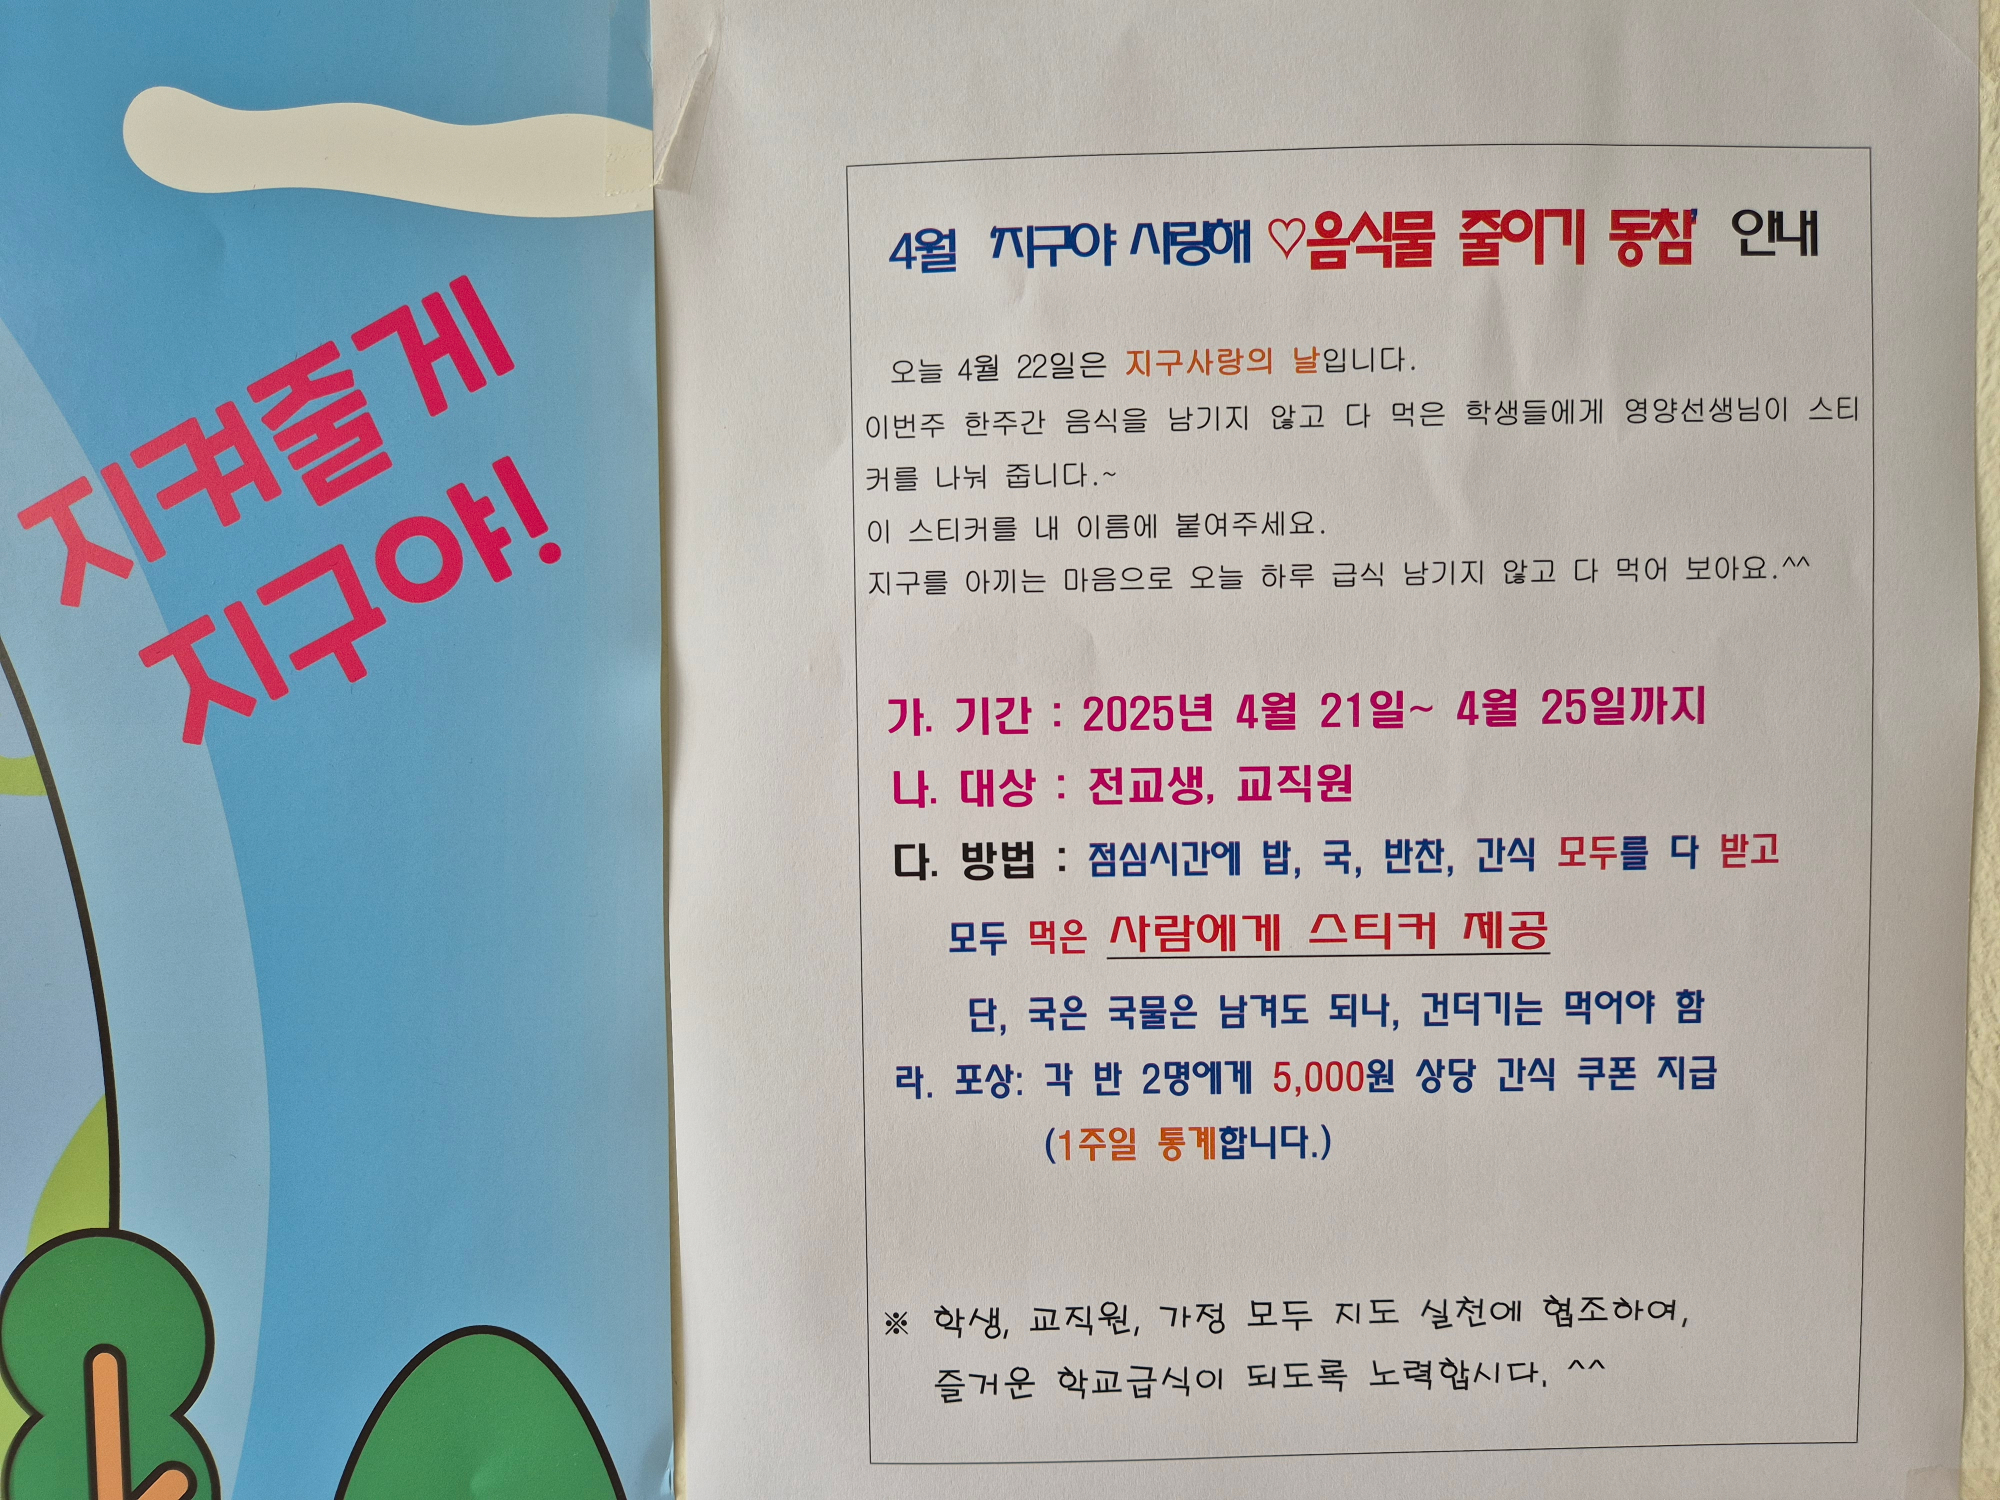 지켜줄게
지구야!
4월 '지구야 사랑해 ♡음식물 줄이기 동참' 안내
오늘 4월 22일은 지구사랑의 날입니다.
이번주 한주간 음식을 남기지 않고 다 먹은 학생들에게 영양선생님이 스티
커를 나눠 줍니다.~
이 스티커를 내 이름에 붙여주세요.
지구를 아끼는 마음으로 오늘 하루 급식 남기지 않고 다 먹어 보아요.^^
가. 기간 : 2025년 4월 21일~ 4월 25일까지
나. 대상 : 전교생, 교직원
다. 방법 : 점심시간에 밥, 국, 반찬, 간식 모두를 다 받고
모두 먹은 사람에게 스티커 제공
단, 국은 국물은 남겨도 되나, 건더기는 먹어야 함
라. 포상: 각 반 2명에게 5,000원 상당 간식 쿠폰 지급
(1주일 통계합니다.)
※ 학생, 교직원, 가정 모두 지도 실천에 협조하여,
즐거운 학교급식이 되도록 노력합시다. ^^